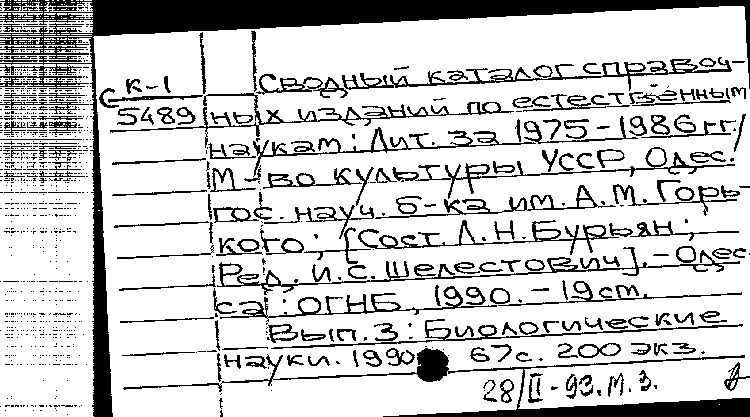 К-1 Сводный каталог справоч-
С 5489 ных изданий по естественным
наукам: Лит. за 1975-1986 гг./
М-во культуры УССР, Одес.
гос. науч. б-ка им. А.М. Горь-
кого; [Сост. Л.Н. Бурьян;
Ред. И.С. Шелестович]. - Одес-
са: ОГНБ, 1990. - 19 cm.
Вып. 3: Биологические
науки. 1990 67с. 200 экз.
28/II-93. М. З.